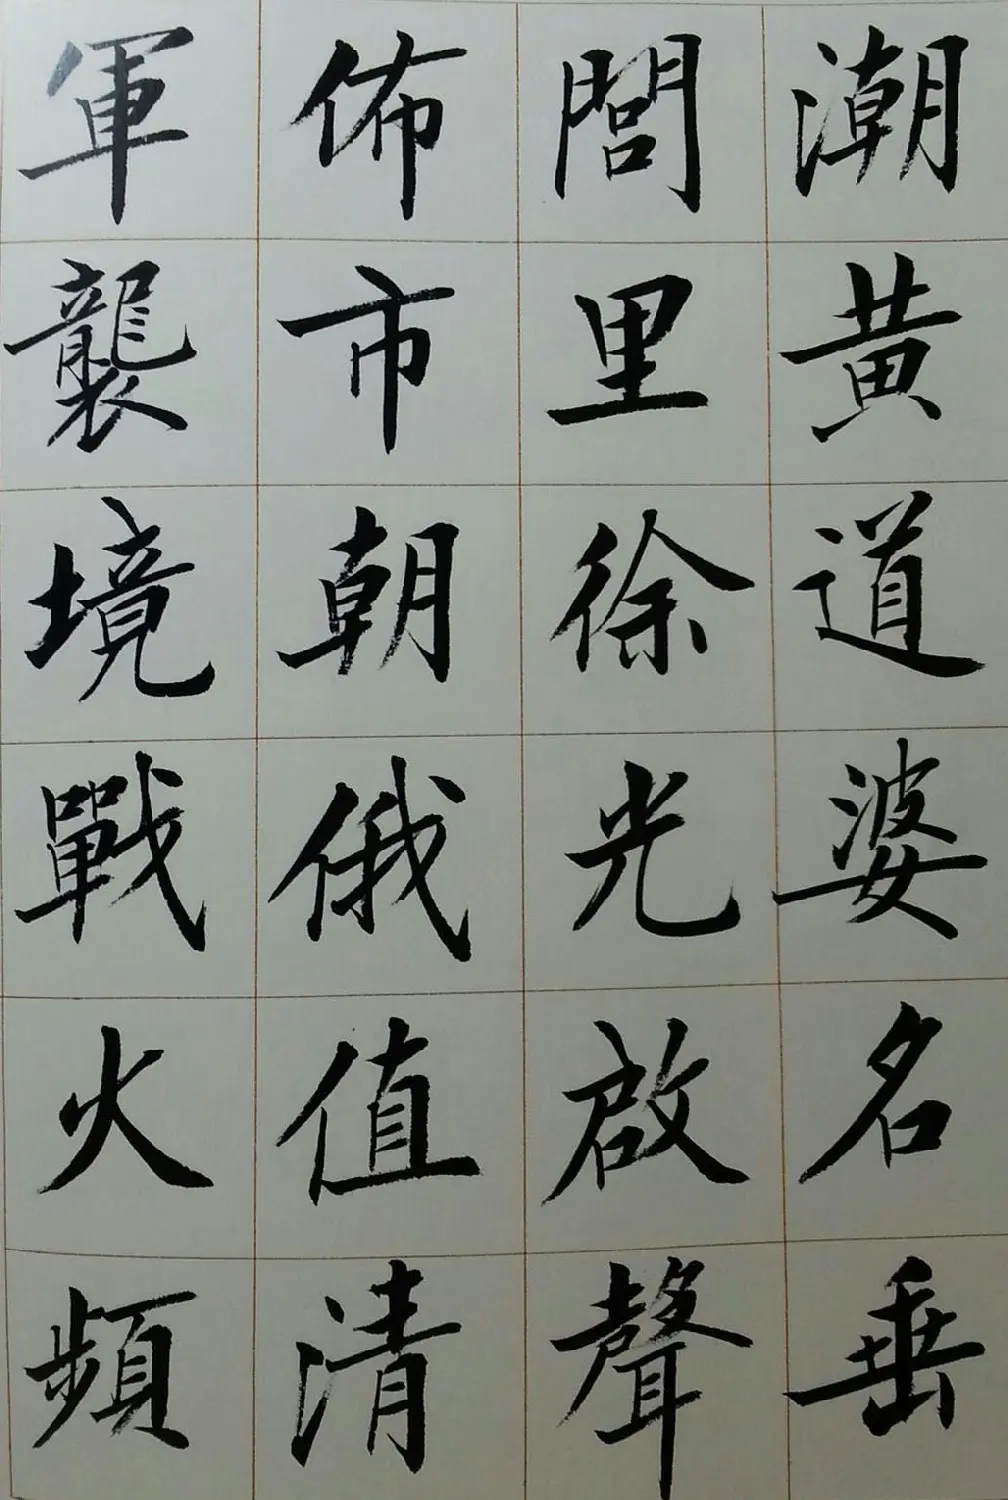 潮黃道婆名垂
閭里徐光啟聲
佈市朝俄值清
軍襲境戰火頻